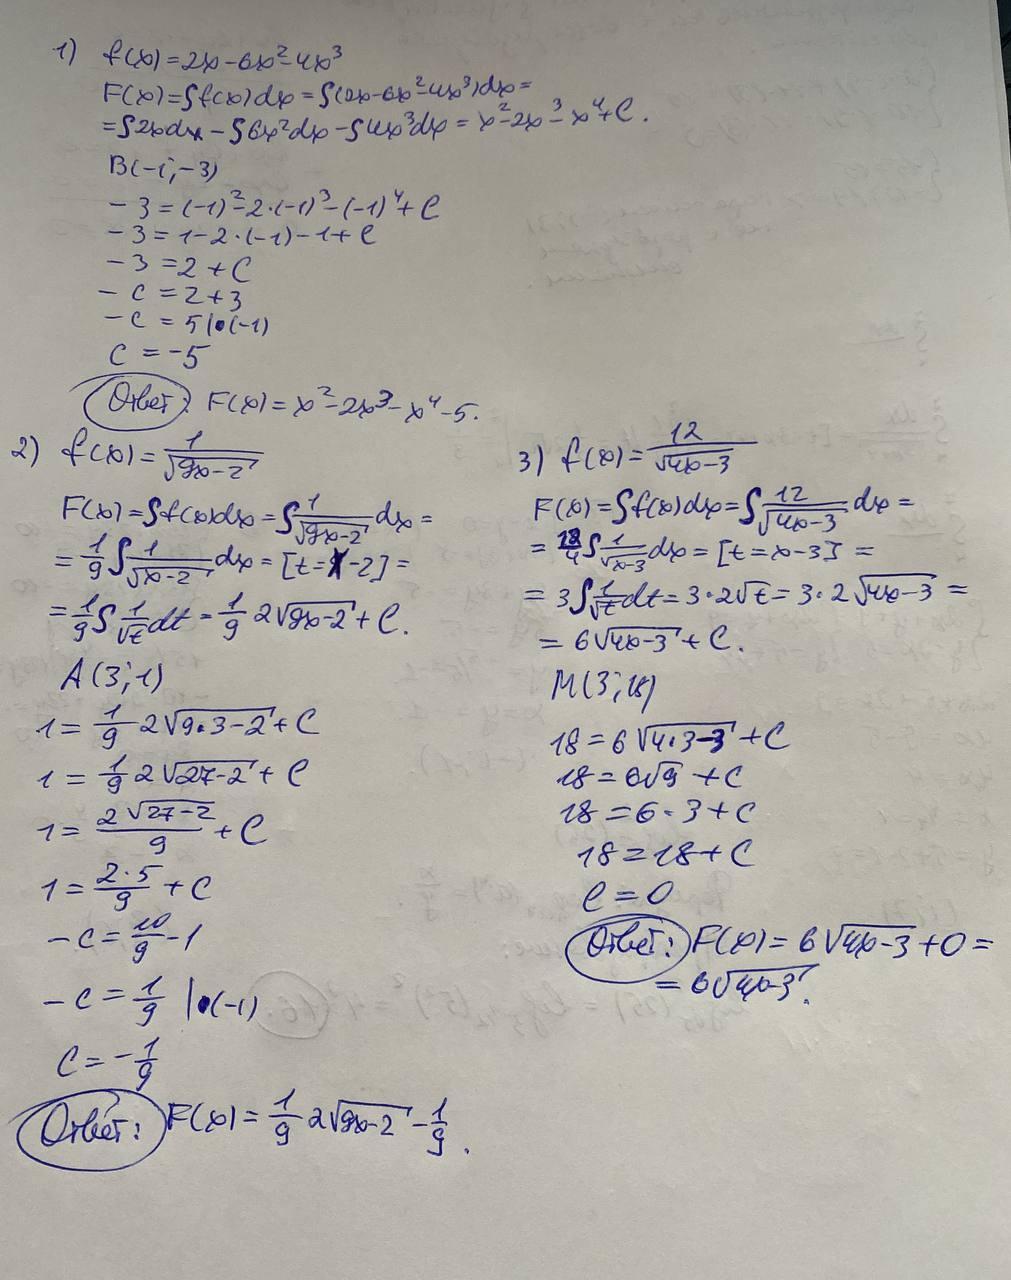 1) f(x)=2x-6x²-4x³
F(x)=∫f(x)dx=∫(2x-6x²-4x³)dx=
=∫2xdx-∫6x²dx-∫4x³dx=x²-2x³-x⁴+C.
B(-1;-3)
-3=(-1)²-2·(-1)³-(-1)⁴+C
-3=1-2·(-1)-1+C
-3=2+C
-C=2+3
-C=5|·(-1)
C=-5
Ответ: F(x)=x²-2x³-x⁴-5.
2) f(x)=1/√(9x-2)
F(x)=∫f(x)dx=∫1/√(9x-2)dx=
=1/9∫1/√(x-2)dx=[t=x-2]=
=1/9∫1/√t dt=1/9 2√(9x-2)+C.
A(3;1)
1=1/9 2√(9·3-2)+C
1=1/9 2√(27-2)+C
1=2√(27-2)/9+C
1=2·5/9+C
-C=10/9-1
-C=1/9 |·(-1)
C=-1/9
Ответ: F(x)=1/9 2√(9x-2)-1/9.
3) f(x)=12/√(4x-3)
F(x)=∫f(x)dx=∫12/√(4x-3)dx=
=12/4∫1/√(x-3)dx=[t=x-3]=
=3∫1/√t dt=3·2√t=3·2√(4x-3)=
=6√(4x-3)+C.
M(3;18)
18=6√(4·3-3)+C
18=6√9+C
18=6·3+C
18=18+C
C=0
Ответ: F(x)=6√(4x-3)+0=
=6√(4x-3).